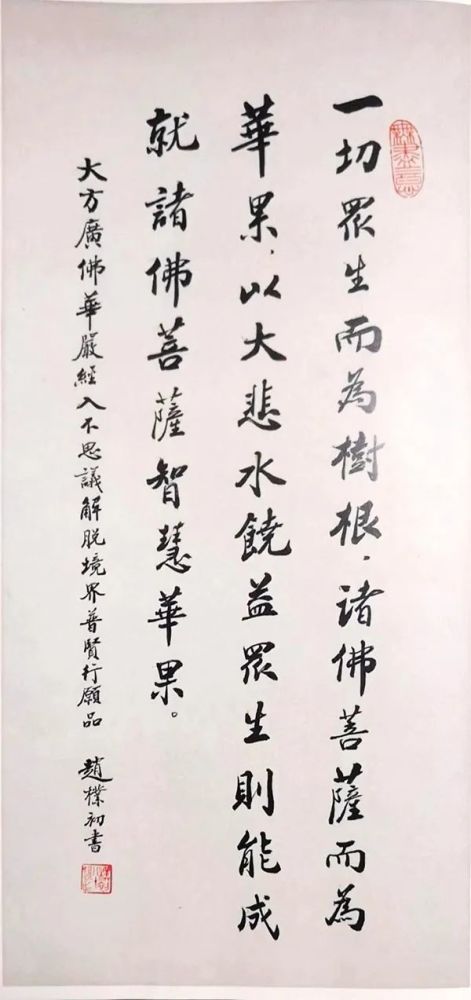 一切眾生而為樹根，諸佛菩薩而為
華果，以大悲水饒益眾生則能成
就諸佛菩薩智慧華果。
大方廣佛華嚴經入不思議解脱境界普賢行願品 趙樸初書